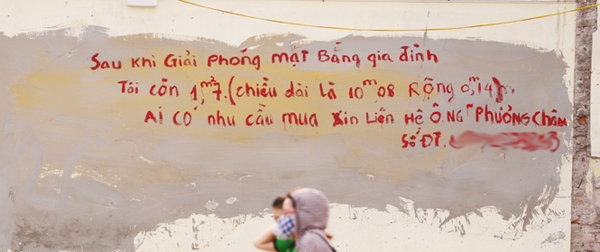 Sau khi Giải phóng mặt Bằng gia đình
Tôi còn 1,m²7.(chiều dài là 10m08 Rộng 0,m14)
Ai có nhu cầu mua xin liên hệ Ô.NG "PHƯƠNG CHÂM
Số ĐT.